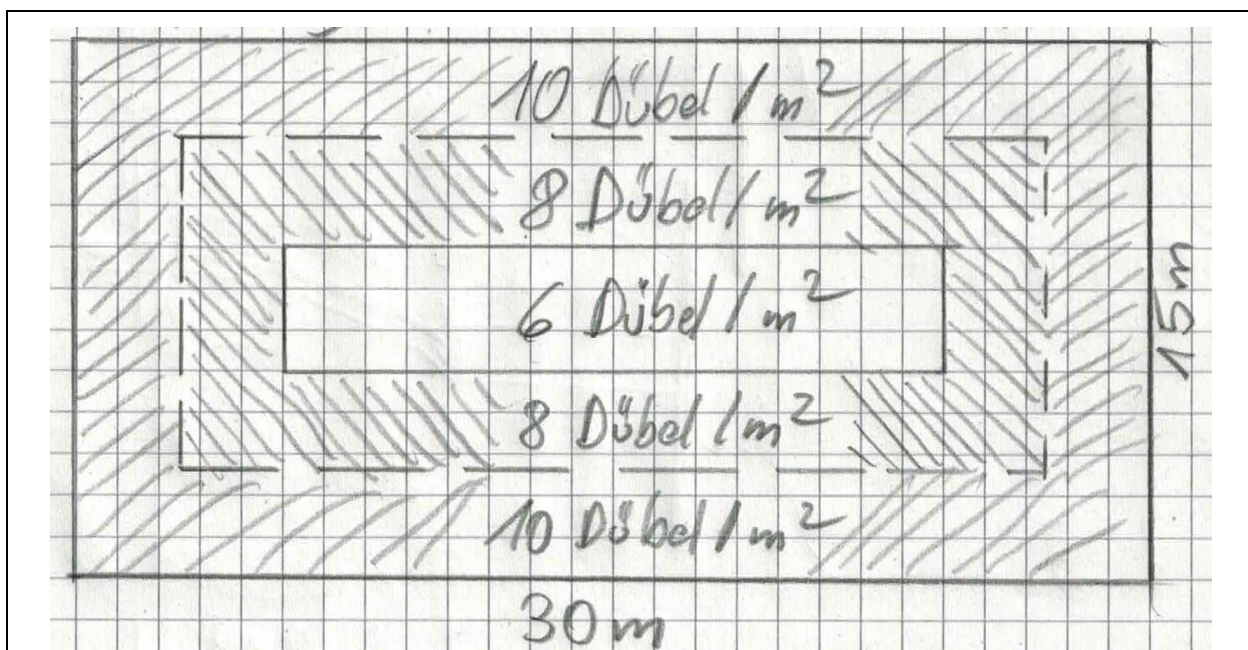 10 Dübel / m²
8 Dübel / m²
6 Dübel / m²
15m
8 Dübel / m²
10 Dübel / m²
30 m